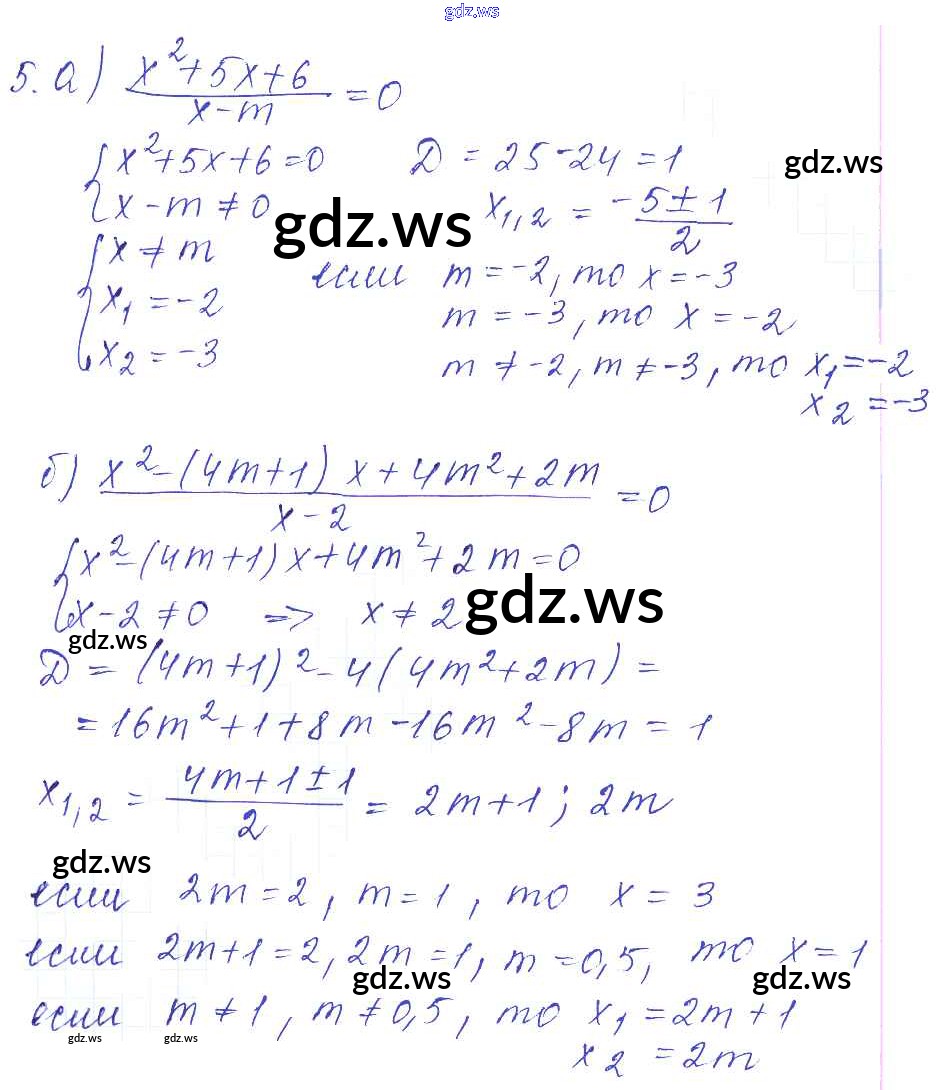 gdz.ws
5. а) (x²+5x+6)/(x-m) = 0
{x²+5x+6=0 Д = 25-24=1
gdz.ws
{x-m≠0 x₁,₂ = (-5±1)/2
gdz.ws
{x≠m если m=-2, то x=-3
x₁=-2 m=-3, то x=-2
x₂=-3 m≠-2, m≠-3, то x₁=-2
x₂=-3
б) (x²-(4m+1)x+4m²+2m)/(x-2) = 0
{x²-(4m+1)x+4m²+2m=0
x-2≠0 => x≠2
gdz.ws
gdz.ws
Д = (4m+1)²-4(4m²+2m) =
=16m²+1+8m-16m²-8m = 1
x₁,₂ = (4m+1±1)/2 = 2m+1; 2m
gdz.ws
если 2m=2, m=1, то x=3
если 2m+1=2, 2m=1, m=0,5, то x=1
gdz.ws gdz.ws
если m≠1, m≠0,5, то x₁=2m+1
gdz.ws gdz.ws
x₂=2m